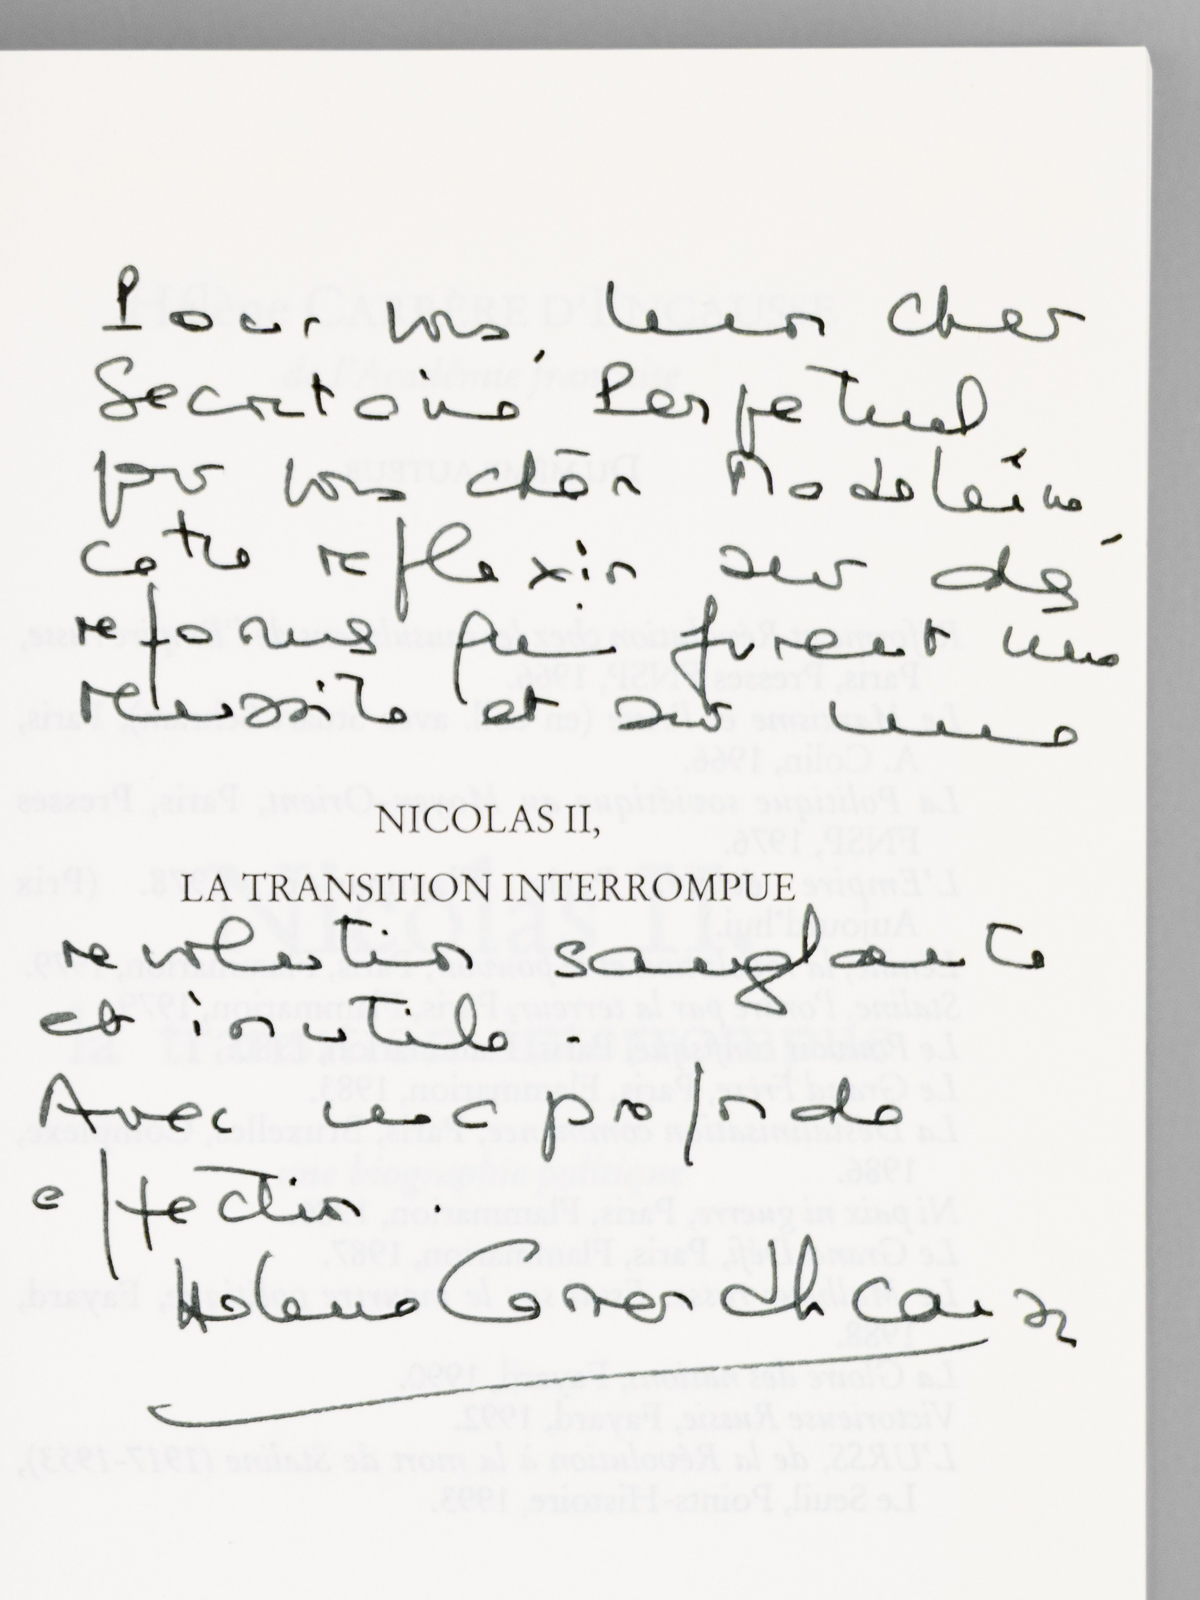 Pour vous, bien cher
Secrétaire Perpétuel
pour vous chère Madeleine
cette réflexion sur des
reformes qui furent une
réussite et sur une
NICOLAS II,
LA TRANSITION INTERROMPUE
revolution sanglante
et inutile.
Avec une profonde
affection.
Hélène Carrère d'Encausse